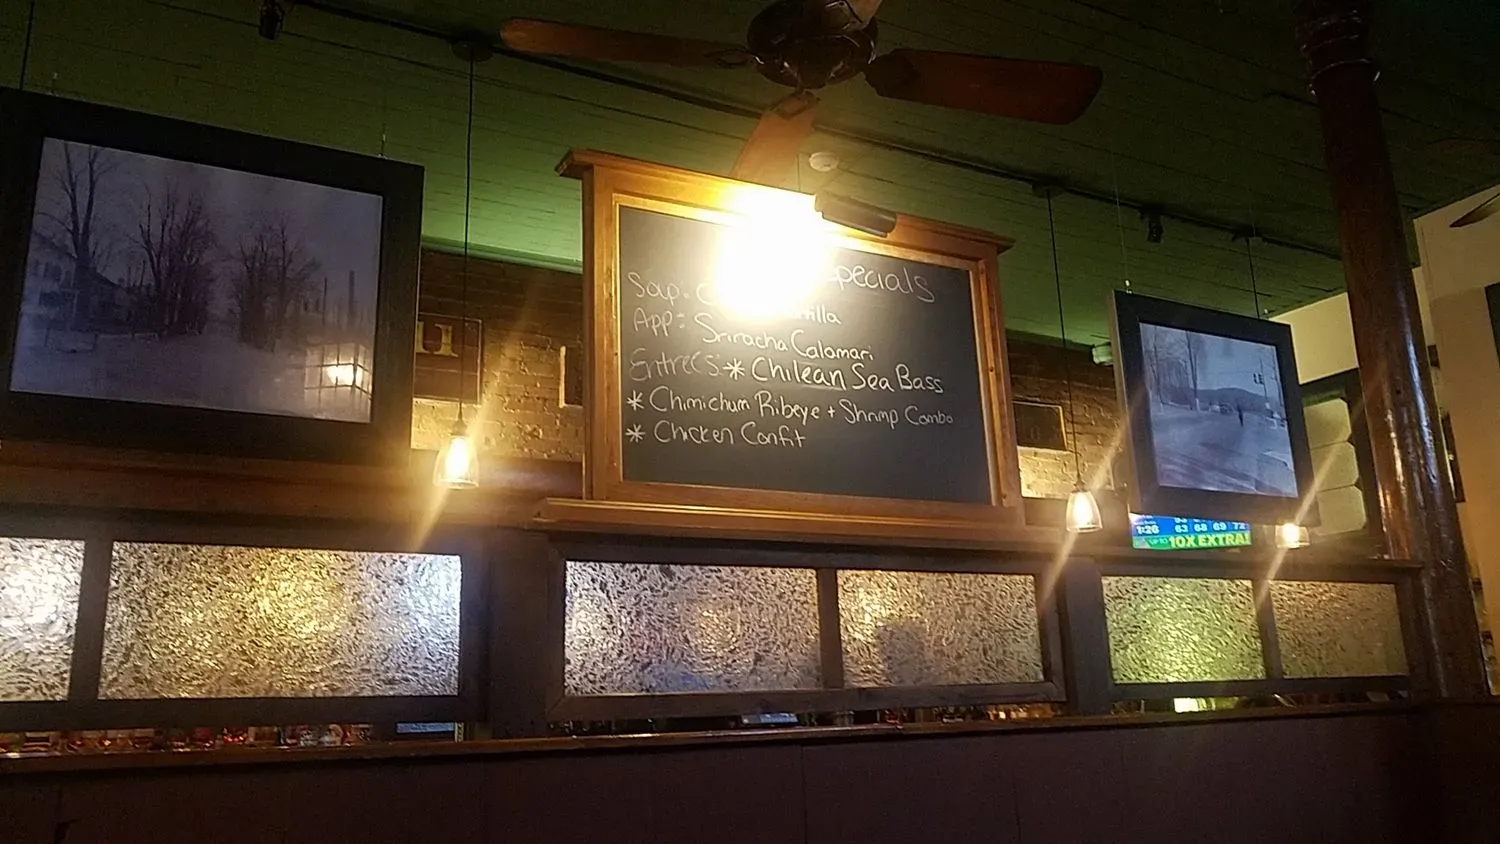 Specials
Soup:
App: Sriracha Calamari
Entrees: * Chilean Sea Bass
* Chimichurri Ribeye + Shrimp Combo
* Chicken Confit
u
1:26 63 68 69 72
10X EXTRA!